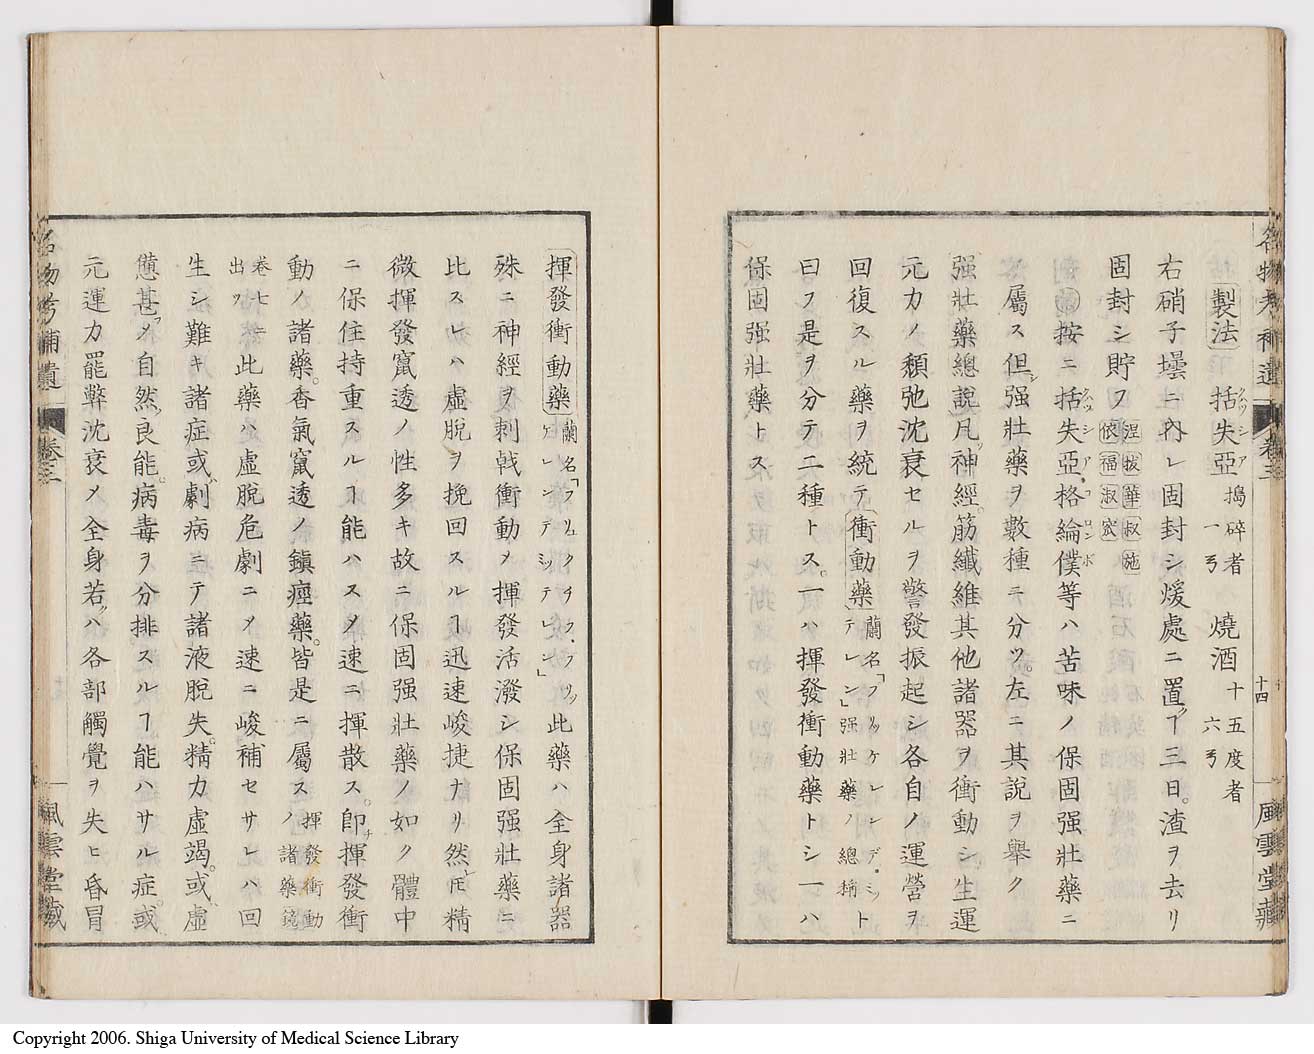 名物考補遺 卷三 十四 風雲堂藏
製法 括失亞 搗碎者 一ヲ 燒酒 十五度者 六ヲ
右硝子壜ニ內レ固封シ煖處ニ置ク三日。渣ヲ去リ
固封シ貯フ 涅拔華叔施 依福淑窊
按ニ括失亞格綸僕等ハ苦味ノ保固强壯藥ニ
屬ス但シ强壯藥ヲ數種ニ分ツ。左ニ其說ヲ舉ク
强壯藥總說 凡ソ神經。筋纖維其他諸器ヲ衝動シ生運
元力ノ頹弛沈衰セルヲ警發振起シ各自ノ運營ヲ
回復スル藥ヲ統テ衝動藥 蘭名「プリッケレンデ・ミッデレン」强壯藥ノ總稱 ト
曰フ是ヲ分テ二種トス。一ハ揮發衝動藥トシ一ハ
保固强壯藥トス
揮發衝動藥 此藥ハ全身諸器
殊ニ神經ヲ刺戟衝動メ揮發活潑シ保固强壯藥ニ
比スレハ虛脫ヲ挽回スルヿ迅速峻捷ナリ然レ𪜈精
微揮發竄透ノ性多キ故ニ保固强壯藥ノ如ク體中
ニ保住持重スルヿ能ハスメ速ニ揮散ス。卽チ揮發衝
動ノ諸藥。香氣竄透ノ鎮痙藥。皆是ニ屬ス 揮發衝動ノ諸藥
卷七ニ出ツ 此藥ハ虛脫危劇ニメ速ニ峻補セサレハ回
生シ難キ諸症或ハ劇病ニテ諸液脫失。精力虛竭。或虛
憊甚メ自然ノ良能。病毒ヲ分排スルヿ能ハサル症。或
元運力罷弊沈衰メ全身若ハ各部觸覺ヲ失ヒ昏冒
名物考補遺 卷三 風雲堂藏
Copyright 2006. Shiga University of Medical Science Library